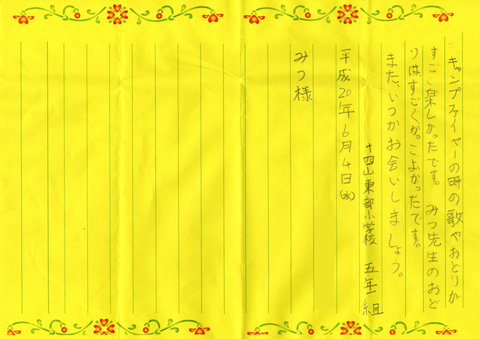 キャンプファイヤーの時の歌やおどりが
すごく楽しかったです。みつ先生のおど
りはすごくかっこよかったです。
また、いつかお会いしましょう。
十四山東部小学校 五年組
平成20年6月4日(水)
みつ様